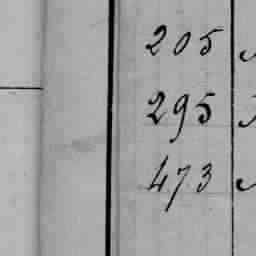 205
295
473